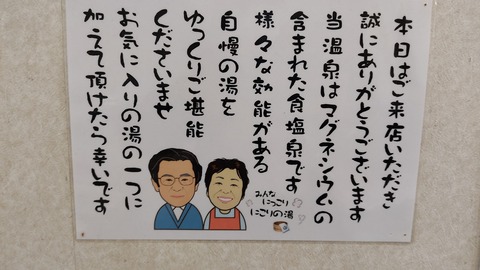 本日はご来店いただき
誠にありがとうございます
当温泉はマグネシウムの
含まれた食塩泉です
様々な効能がある
自慢の湯を
ゆっくりご堪能
くださいませ
お気に入りの湯の一つに
加えて頂けたら幸いです
みんな
にっこり
にこりの湯